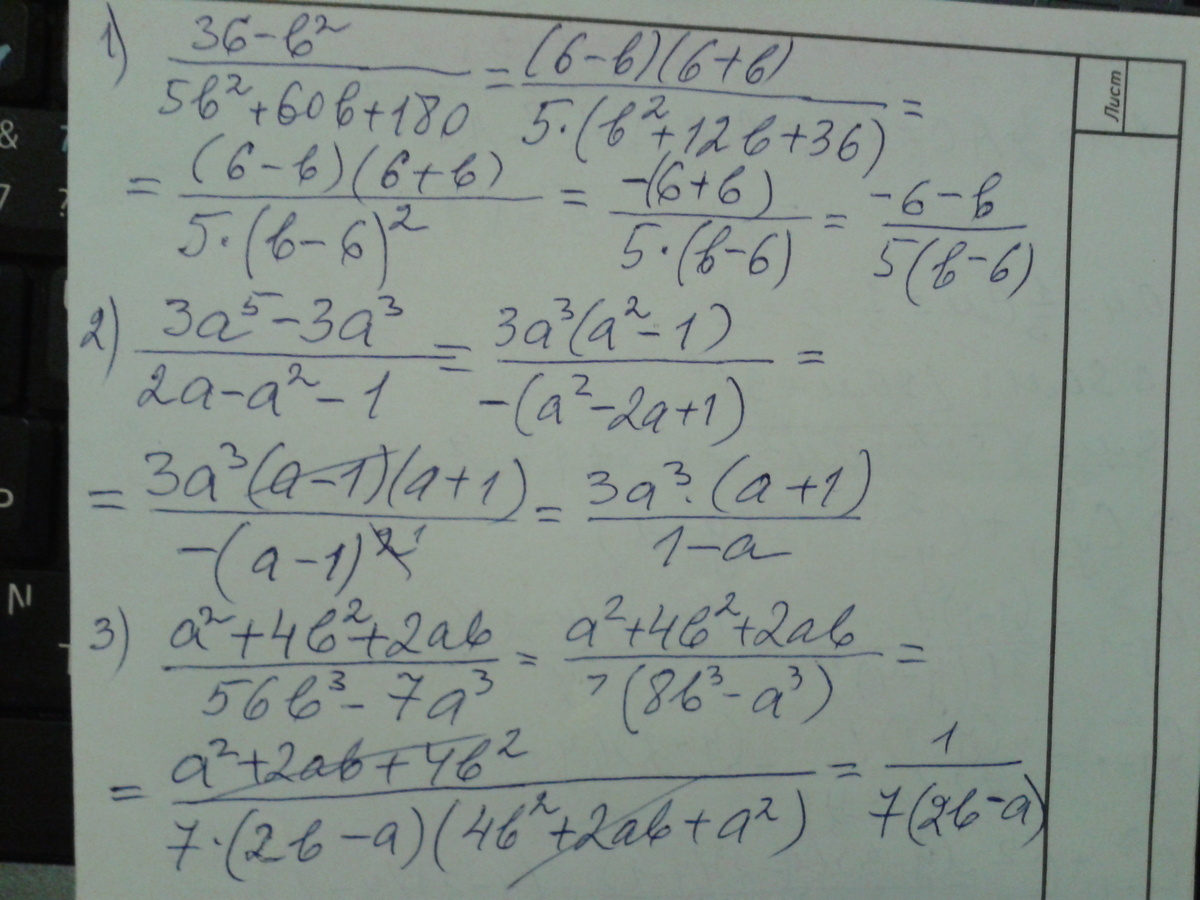 1) (36-b²)/(5b²+60b+180) = ((6-b)(6+b))/(5·(b²+12b+36)) =
= ((6-b)(6+b))/(5·(b-6)²) = (-(6+b))/(5·(b-6)) = (-6-b)/(5(b-6))
2) (3a⁵-3a³)/(2a-a²-1) = (3a³(a²-1))/(-(a²-2a+1)) =
= (3a³(a-1)(a+1))/(-(a-1)²¹) = (3a³·(a+1))/(1-a)
3) (a²+4b²+2ab)/(56b³-7a³) = (a²+4b²+2ab)/(7(8b³-a³)) =
= (a²+2ab+4b²)/(7·(2b-a)(4b²+2ab+a²)) = 1/(7(2b-a))
Лист